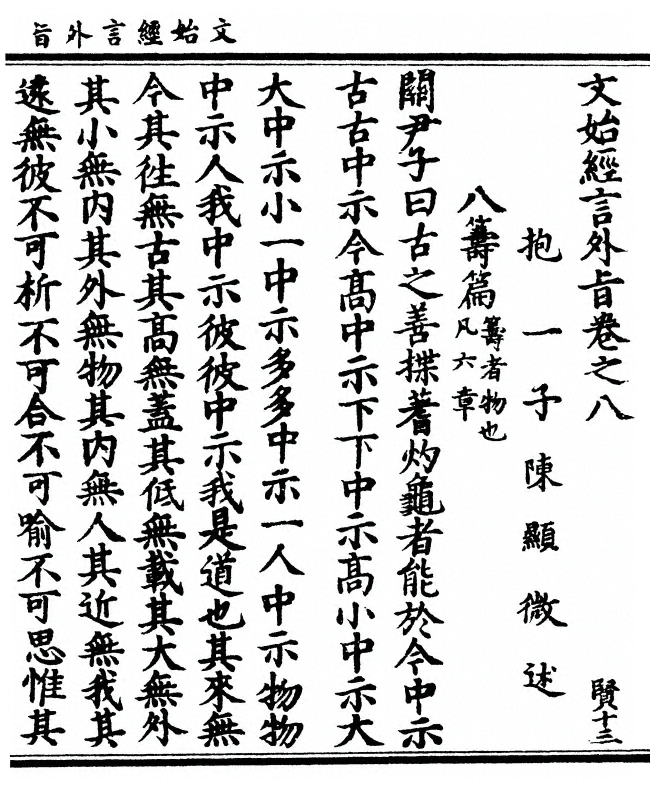 文始經言外旨
文始經言外旨卷之八 賢十三
抱一子陳顯微述
八籌篇 籌者物也
凡六章
關尹子曰古之善揲蓍灼龜者能於今中示
古古中示今髙中示下下中示髙小中示大
大中示小一中示多多中示一人中示物物
中示人我中示彼彼中示我是道也其來無
今其徃無古其髙無蓋其低無載其大無外
其小無内其外無物其内無人其近無我其
遠無彼不可析不可合不可喻不可思惟其